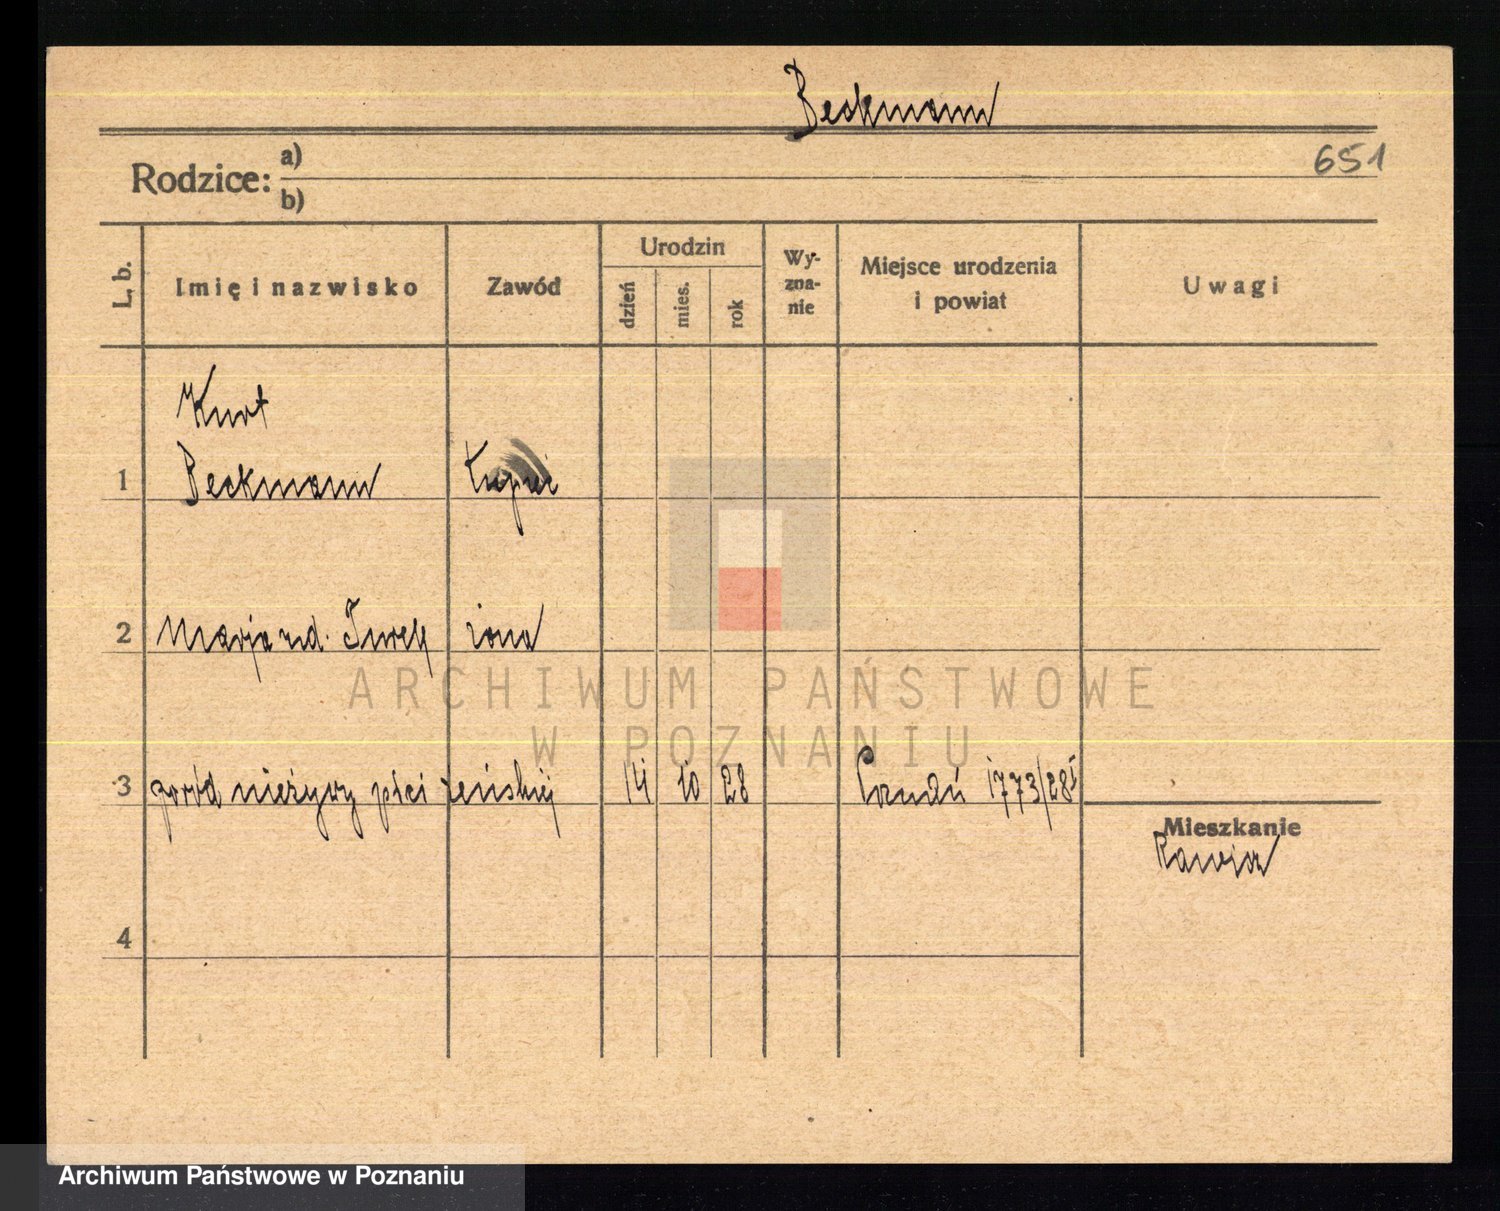 Beckmann
651
Rodzice: a)
b)
L. b. Imię i nazwisko Zawód Urodzin dzień mies. rok Wy-zna-nie Miejsce urodzenia i powiat Uwagi
Kurt
1 Beckmann kupiec
2 Marja urd. żona
3 poród nieżywy płci żeńskiej 14 10 28 Poznań 1773/28 I
Mieszkanie
4
ARCHIWUM PAŃSTWOWE
W POZNANIU
Archiwum Państwowe w Poznaniu